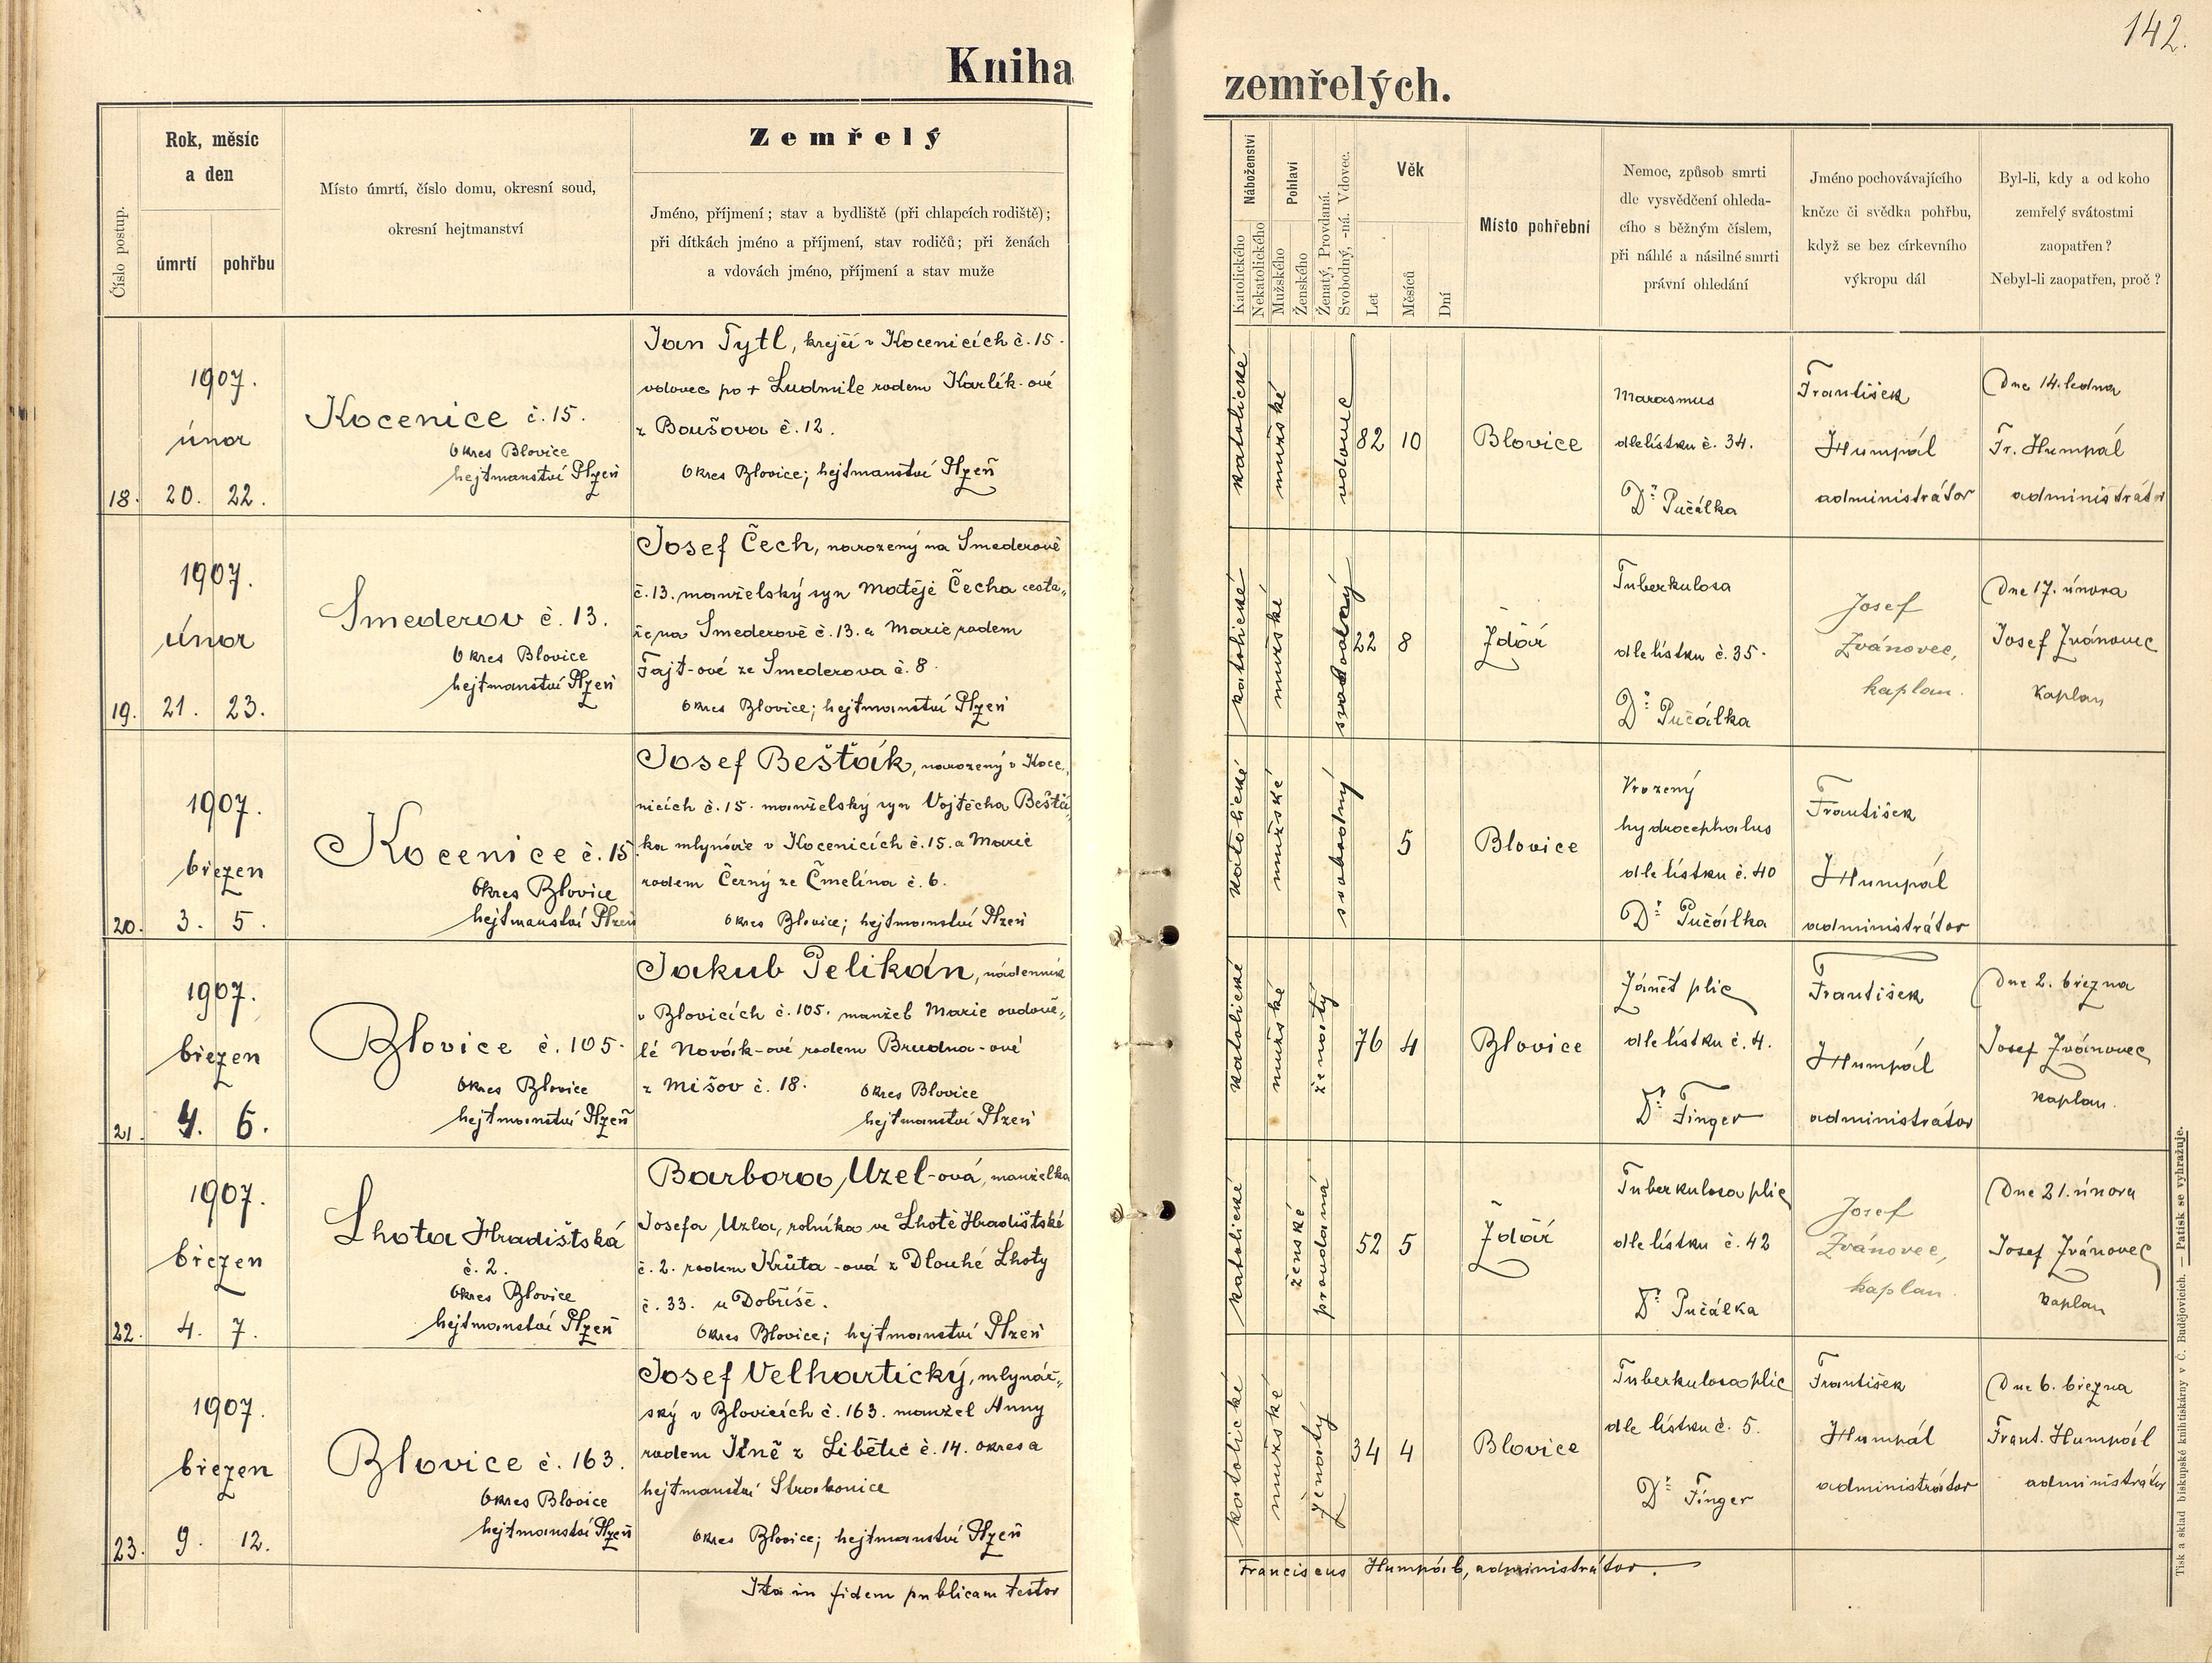 142.
Kniha zemřelých.
Číslo postup.
Rok, měsíc
a den
úmrtí
pohřbu
Místo úmrtí, číslo domu, okresní soud,
okresní hejtmanství
Zemřelý
Jméno, příjmení; stav a bydliště (při chlapcích rodiště);
při dítkách jméno a příjmení, stav rodičů; při ženách
a vdovách jméno, příjmení a stav muže
Náboženství
Katolického
Nekatolického
Pohlaví
Mužského
Ženského
Ženatý, Provdaná.
Svobodný, -ná. Vdovec.
Věk
Let
Měsíců
Dní
Místo pohřební
Nemoc, způsob smrti
dle vysvědčení ohleda-
cího s běžným číslem,
při náhlé a násilné smrti
právní ohledání
Jméno pochovávajícího
kněze či svědka pohřbu,
když se bez církevního
výkropu dál
Byl-li, kdy a od koho
zemřelý svátostmi
zaopatřen?
Nebyl-li zaopatřen, proč?
18.
1907.
únor
20. 22.
Kocenice č. 15.
Okres Blovice
hejtmanství Plzeň
Jan Tytl, krejčí v Kocenicích č. 15.
vdovec po + Ludmile rodem Karlík-ové
z Boušova č. 12.
Okres Blovice; hejtmanství Plzeň
katolické
mužské
vdovec
82 10
Blovice
Marasmus
dle lístku č. 34.
Dr. Pučálka
František
Humpál
administrátor
Dne 14. ledna
Fr. Humpál
administrátor
19.
1907.
únor
21. 23.
Smederov č. 13.
Okres Blovice
hejtmanství Plzeň
Josef Čech, narozený na Smederově
č. 13. manželský syn Matěje Čecha cesta„
ře, na Smederově č. 13. a Marie rodem
Fajt-ové ze Smederova č. 8.
Okres Blovice; hejtmanství Plzeň
katolické
mužské
svobodný
22 8
Ždár
Tuberkulosa
dle lístku č. 35.
Dr. Pučálka
Josef
Zvánovec,
kaplan.
Dne 17. února
Josef Zvánovec
kaplan
20.
1907.
březen
3. 5.
Kocenice č. 15
Okres Blovice
hejtmanství Plzeň
Josef Bešťák, narozený v Koce„
nicích č. 15. manželský syn Vojtěcha Bešťá„
ka mlynáře v Kocenicích č. 15. a Marie
rodem Černý ze Čmelína č. 6.
Okres Blovice; hejtmanství Plzeň
katolické
mužské
svobodný
5
Blovice
Vrozený
hydrocephalus
dle lístku č. 40
Dr. Pučálka
František
Humpál
administrátor
21.
1907.
březen
4. 6.
Blovice č. 105.
Okres Blovice
hejtmanství Plzeň
Jakub Pelikán, nádenník
v Blovicích č. 105. manžel Marie ovdově„
lé Novák-ové rodem Brudna-ové
z Mišov č. 18.
Okres Blovice
hejtmanství Plzeň
katolické
mužské
ženatý
76 4
Blovice
Zánět plic
dle lístku č. 4.
Dr. Finger
František
Humpál
administrátor
Dne 2. března
Josef Zvánovec
kaplan.
22.
1907.
březen
4. 7.
Lhota Hradištská
č. 2.
Okres Blovice
hejtmanství Plzeň
Barbora Uzel-ová, manželka
Josefa Uzla, rolníka ve Lhotě Hradištské
č. 2. rodem Krůta-ová z Dlouhé Lhoty
č. 33. u Dobříše.
Okres Blovice; hejtmanství Plzeň
katolické
ženské
provdaná
52 5
Ždár
Tuberkulosa plic
dle lístku č. 42
Dr. Pučálka
Josef
Zvánovec,
kaplan.
Dne 21. února
Josef Zvánovec
kaplan
23.
1907.
březen
9. 12.
Blovice č. 163.
Okres Blovice
hejtmanství Plzeň
Josef Velhartický, mlynář„
ský v Blovicích č. 163. manžel Anny
rodem Jíně z Libětic č. 14. okres a
hejtmanství Strakonice
Okres Blovice; hejtmanství Plzeň
katolické
mužské
ženatý
34 4
Blovice
Tuberkulosa plic
dle lístku č. 5.
Dr. Finger
František
Humpál
administrátor
Dne 6. března
Frant. Humpál
administrátor
Ita in fidem publicam testor
Franciscus Humpál, administrátor.
Tisk a sklad biskupské knihtiskárny v Č. Budějovicích. — Patisk se vyhražuje.